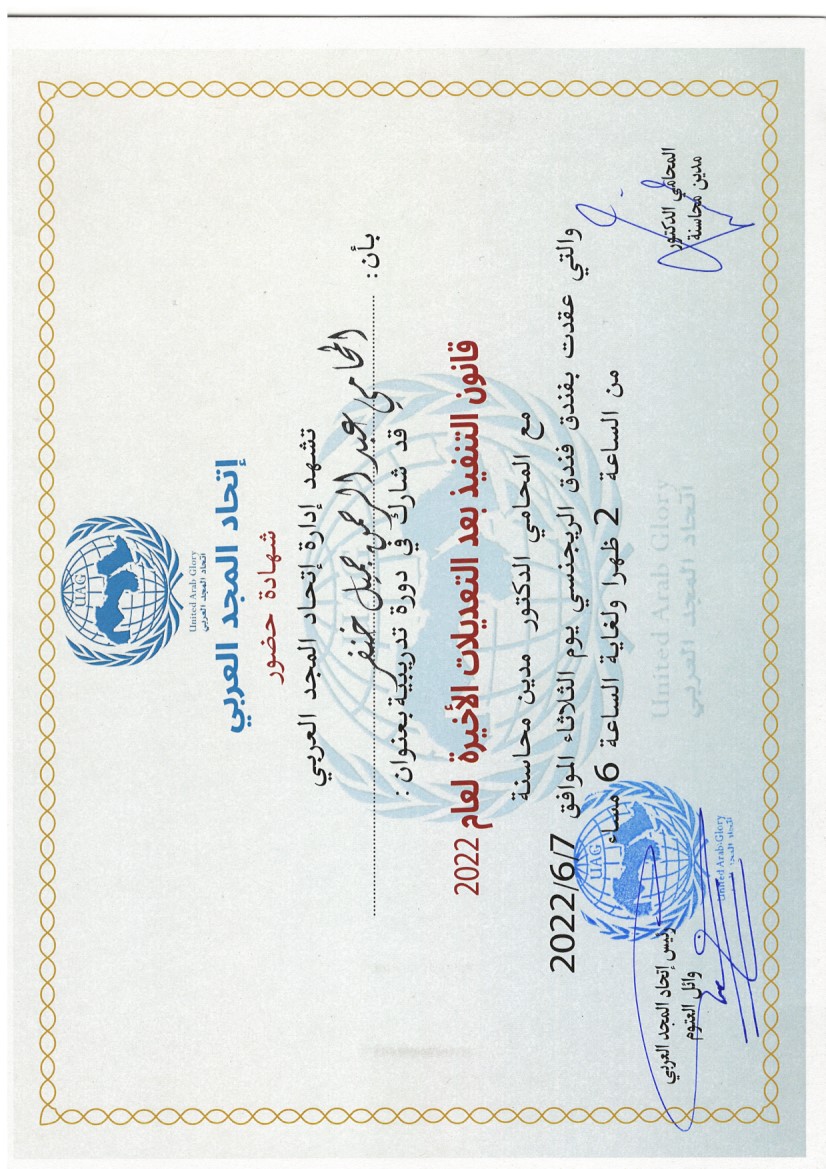 UAG
United Arab Glory
اتحاد المجد العربي
إتحاد المجد العربي
شهادة حضور
تشهد إدارة إتحاد المجد العربي
بأن : المحامي عبد الرحمن جميل خنفر
قد شارك في دورة تدريبية بعنوان :
قانون التنفيذ بعد التعديلات الأخيرة لعام 2022
مع المحامي الدكتور مدين محاسنة
والتي عقدت بفندق فندق الريجنسي يوم الثلاثاء الموافق 2022/6/7
من الساعة 2 ظهرا ولغاية الساعة 6 مساء
United Arab Glory
اتحاد المجد العربي
المحامي الدكتور
مدين محاسنة
UAG
United Arab Glory
اتحاد المجد العربي
رئيس إتحاد المجد العربي
وائل العتوم